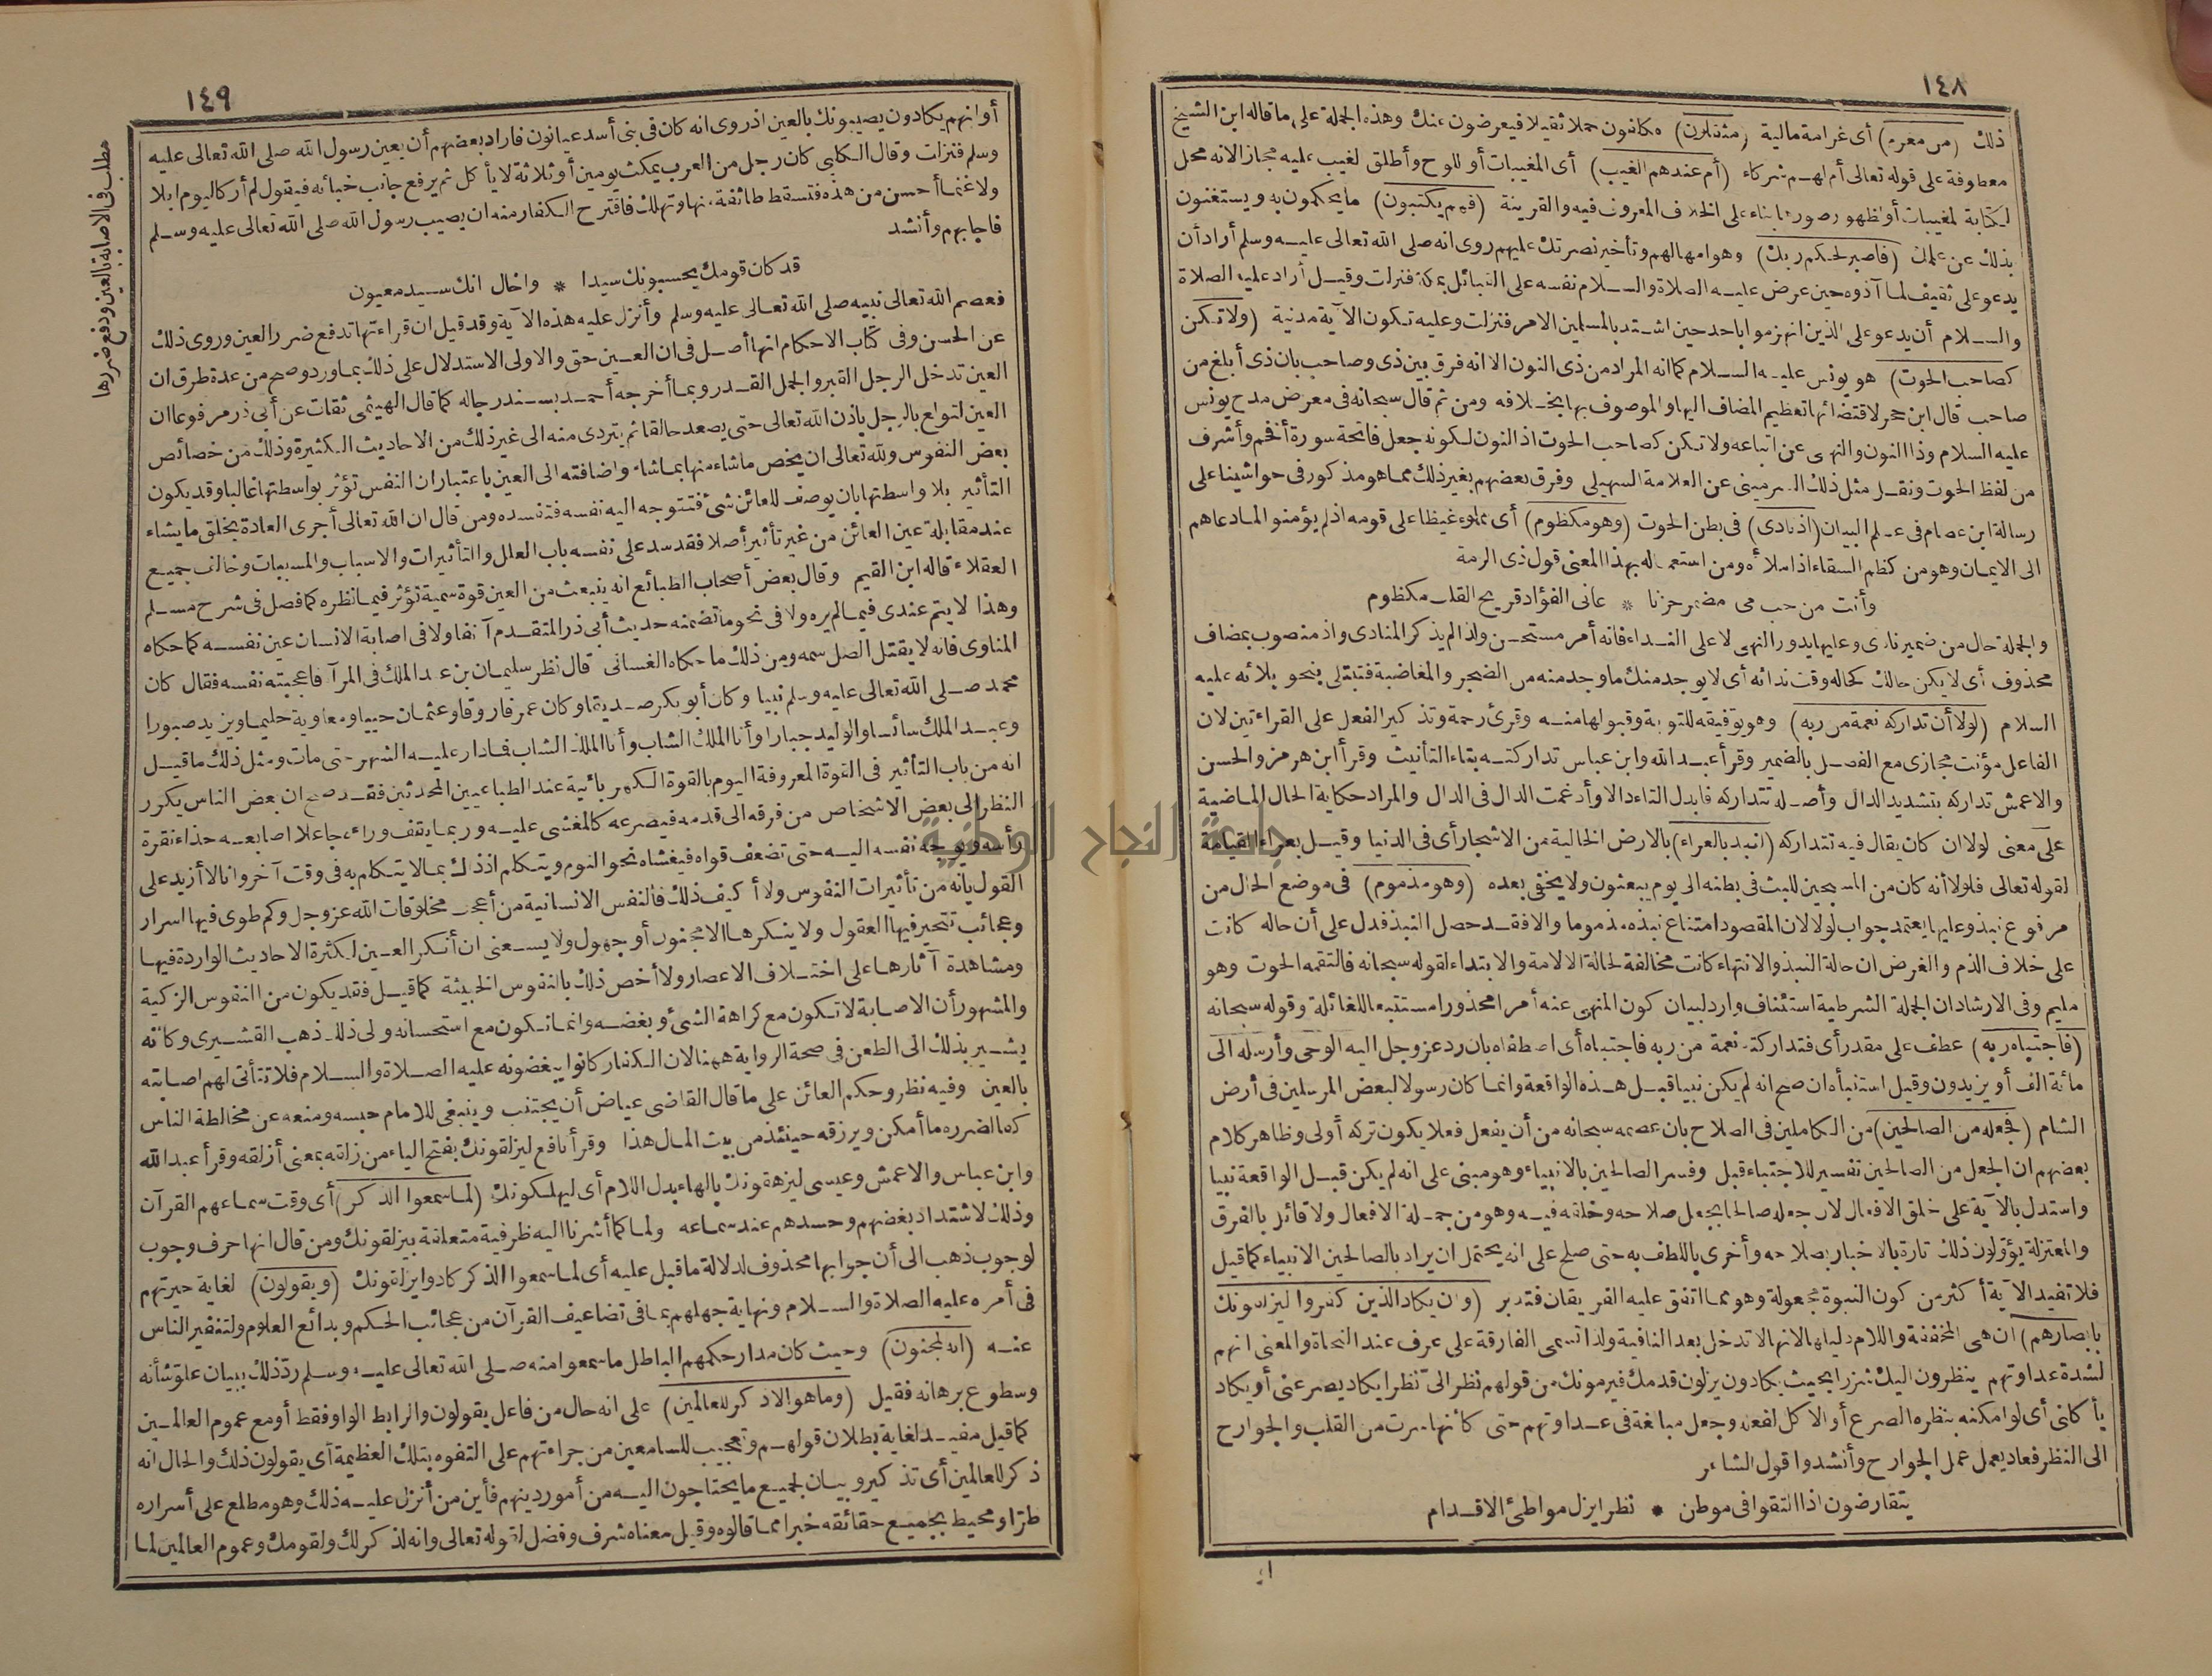 ١٤٨
ذلك (من مغرم) أى غرامة مالية (مثقلون) مكلفون حملا ثقيلا فيعرضون عنك وهذه الجملة على ما قاله ابن الشيخ
معطوفة على قوله تعالى أم لهم شركاء (أم عندهم الغيب) أى المغيبات أو اللوح وأطلق الغيب عليه مجازا لانه محل
لكتابة المغيبات أو لظهور صورها بناء على الخلاف المعروف فيه والقرينة (فهم يكتبون) ما يحكمون به ويستغنون
بذلك عن علمك (فاصبر لحكم ربك) وهو امهالهم وتأخير نصرتك عليهم روى انه صلى الله تعالى عليه وسلم أراد أن
يدعو على ثقيف لما آذوه حين عرض عليه الصلاة والسلام نفسه على القبائل بمكة فنزلت وقيل أراد عليه الصلاة
والسلام أن يدعو على الذين انهزموا باحد حين اشتد بالمسلمين الامر فنزلت وعليه تكون الآية مدنية (ولا تكن
كصاحب الحوت) هو يونس عليه السلام كما انه المراد من ذى النون الا انه فرق بين ذى وصاحب بان ذى أبلغ من
صاحب قال ابن حجر لاقتضائها تعظيم المضاف اليها والموصوف بها بخلافه ومن ثم قال سبحانه فى معرض مدح يونس
عليه السلام وذا النون والنهى عن اتباعه ولا تكن كصاحب الحوت اذ النون لكونه جعل فاتحة سورة أفخم وأشرف
من لفظ الحوت ونقل مثل ذلك السرمينى عن العلامة السهيلى وفرق بعضهم بغير ذلك مما هو مذكور فى حواشينا على
رسالة ابن عصام فى علم البيان (اذ نادى) فى بطن الحوت (وهو مكظوم) أى مملوء غيظا على قومه اذ لم يؤمنوا لما دعاهم
الى الايمان وهو من كظم السقاء اذا ملأه ومن استعماله بهذا المعنى قول ذى الرمة
وأنت من حب مى مضمر حزنا * عانى الفؤاد قريح القلب مكظوم
والجملة حال من ضمير نادى وعليها يدور النهى لا على النداء فانه أمر مستحسن ولذا لم يذكر المنادى واذ منصوب بمضاف
محذوف أى لا يكن حالك كحاله وقت ندائه أى لا يوجد منك ما وجد منه من الضجر والمغاضبة فتبتلى بنحو بلائه عليه
السلام (لولا أن تداركه نعمة من ربه) وهو توفيقه للتوبة وقبولها منه وقرئ رحمة وتذكير الفعل على القراءتين لان
الفاعل مؤنث مجازى مع الفصل بالضمير وقرأ عبد الله وابن عباس تداركته بتاء التأنيث وقرأ ابن هرمز والحسن
والاعمش تداركه بتشديد الدال وأصله تتداركه فابدل التاء دالا وأدغمت الدال فى الدال والمراد حكاية الحال الماضية
على معنى لولا ان كان يقال فيه تتداركه (لنبذ بالعراء) بالارض الخالية من الاشجار أى فى الدنيا وقيل بعراء القيامة
لقوله تعالى فلولا أنه كان من المسبحين للبث فى بطنه الى يوم يبعثون ولا يخفى بعده (وهو مذموم) فى موضع الحال من
مرفوع نبذ وعليها يعتمد جواب لولا لان المقصود امتناع نبذه مذموما والا فقد حصل النبذ فدل على أن حاله كانت
على خلاف الذم والغرض ان حالة النبذ والانتهاء كانت مخالفة لحالة الالامة والابتداء لقوله سبحانه فالتقمه الحوت وهو
مليم وفى الارشاد ان الجملة الشرطية استئناف وارد لبيان كون المنهى عنه أمرا محذورا مستتبعا للغائلة وقوله سبحانه
(فاجتباه ربه) عطف على مقدر أى فتداركته نعمة من ربه فاجتباه أى اصطفاه بان رد عز وجل اليه الوحى وأرسله الى
مائة ألف أو يزيدون وقيل استنبأه ان صح انه لم يكن نبيا قبل هذه الواقعة وانما كان رسولا لبعض المرسلين فى أرض
الشام (فجعله من الصالحين) من الكاملين فى الصلاح بان عصمه سبحانه من أن يفعل فعلا يكون تركه أولى وظاهر كلام
بعضهم ان الجعل من الصالحين تفسير للاجتباء قبل وفسر الصالحين بالانبياء وهو مبنى على انه لم يكن قبل الواقعة نبيا
واستدل بالآية على خلق الافعال لان جعله صالحا بجعل صلاحه وخلقه فيه وهو من جملة الافعال ولا قائل بالفرق
والمعتزلة يؤولون ذلك تارة بالاخبار بصلاحه وأخرى باللطف به حتى صلح على انه يحتمل ان يراد بالصالحين الانبياء كما قيل
فلا تفيد الآية أكثر من كون النبوة مجعولة وهو مما اتفق عليه الفريقان فتدبر (وان يكاد الذين كفروا ليزلقونك
بابصارهم) ان هى المخففة واللام دليلها لانها لا تدخل بعد النافية ولذا تسمى الفارقة على عرف عند النحاة والمعنى انهم
لشدة عداوتهم ينظرون اليك شزرا بحيث يكادون يزلون قدمك فيرمونك من قولهم نظر الىّ نظرا يكاد يصرعنى أو يكاد
يأكلنى أى لو امكنه بنظره الصرع أو الاكل لفعله وجعل مبالغة فى عداوتهم حتى كأنها سرت من القلب والجوارح
الى النظر فعاد يعمل عمل الجوارح وأنشدوا قول الشاعر
يتقارضون اذا التقوا فى موطن * نظرا يزل مواطئ الاقدام
١٤٩
أو انهم يكادون يصيبونك بالعين اذ روى انه كان فى بنى أسد عيانون فاراد بعضهم أن يعين رسول الله صلى الله تعالى عليه
وسلم فنزلت وقال الكلبى كان رجل من العرب يمكث يومين أو ثلاثة لا يأكل ثم يرفع جانب خبائه فيقول لم أر كاليوم ابلا
ولا غنما أحسن من هذه فتسقط طائفة منها وتهلك فاقترح الكفار منه ان يصيب رسول الله صلى الله تعالى عليه وسلم
فاجابهم وأنشد
قد كان قومك يحسبونك سيدا * واخال انك سيد معيون
فعصم الله تعالى نبيه صلى الله تعالى عليه وسلم وأنزل عليه هذه الآية وقد قيل ان قراءتها تدفع ضرر العين وروى ذلك
عن الحسن وفى كتاب الاحكام انها أصل فى ان العين حق والاولى الاستدلال على ذلك بما ورد وصح من عدة طرق ان
العين تدخل الرجل القبر والجمل القدر وبما أخرجه أحمد بسند رجاله كما قال الهيثمى ثقات عن أبى ذر مرفوعا ان
العين لتولع بالرجل باذن الله تعالى حتى يصعد حالقا ثم يتردى منه الى غير ذلك من الاحاديث الكثيرة وذلك من خصائص
بعض النفوس ولله تعالى ان يخص ما شاء منها بما شاء واضافته الى العين باعتبار ان النفس تؤثر بواسطتها غالبا وقد يكون
التأثير بلا واسطتها بان يوصف للعائن شئ فتتوجه اليه نفسه فتفسده ومن قال ان الله تعالى أجرى العادة بخلق ما يشاء
عند مقابلة عين العائن من غير تأثير أصلا فقد سد على نفسه باب العلل والتأثيرات والاسباب والمسببات وخالف جميع
العقلاء قاله ابن القيم وقال بعض أصحاب الطبائع انه ينبعث من العين قوة سمية تؤثر فيما نظره كما فصل فى شرح مسلم
وهذا لا يتم عندى فيما لم يره ولا فى نحو ما تضمنه حديث أبى ذر المتقدم آنفا ولا فى اصابة الانسان عين نفسه كما حكاه
المناوى فانه لا يقتل الصل سمه ومن ذلك ما حكاه الغسانى قال نظر سليمان بن عبد الملك فى المرآة فاعجبته نفسه فقال كان
محمد صلى الله تعالى عليه وسلم نبيا وكان أبو بكر صديقا وكان عمر فاروقا وعثمان حييا ومعاوية حليما ويزيد صبورا
وعبد الملك سائسا والوليد جبارا وأنا الملك الشاب وأنا الملك الشاب فما دار عليه الشهر حتى مات ومثل ذلك ما قيل
انه من باب التأثير فى القوة المعروفة اليوم بالقوة الكهربائية عند الطباعيين المحدثين فقد صح ان بعض الناس يكرر
النظر الى بعض الاشخاص من فرقه الى قدمه فيصرعه كالمغشى عليه وربما يقف وراءه جاعلا اصابعه حذاء نقرة
رأسه ويوجه نفسه اليه حتى تضعف قواه فيغشاه نحو النوم ويتكلم اذ ذاك بما لا يتكلم به فى وقت آخر وانا لا أزيد على
القول بأنه من تأثيرات النفوس ولا أكيف ذلك فالنفس الانسانية من أعجب مخلوقات الله عز وجل وكم طوى فيها اسرار
وعجائب تتحير فيها العقول ولا ينكرها الا مجنون أو جهول ولا يسعنى ان أنكر العين لكثرة الاحاديث الواردة فيها
ومشاهدة آثارها على اختلاف الاعصار ولا أخص ذلك بالنفوس الخبيثة كما قيل فقد يكون من النفوس الزكية
والمشهور أن الاصابة لا تكون مع كراهة الشئ وبغضه وانما تكون مع استحسانه والى ذلك ذهب القشيرى وكأنه
يشير بذلك الى الطعن فى صحة الرواية ههنا لان الكفار كانوا يبغضونه عليه الصلاة والسلام فلا تتأتى لهم اصابته
بالعين وفيه نظر وحكم العائن على ما قال القاضى عياض أن يجتنب وينبغى للامام حبسه ومنعه عن مخالطة الناس
كفا لضرره ما أمكن ويرزقه حينئذ من بيت المال هذا وقرأ نافع ليزلقونك بفتح الياء من زلقه بمعنى أزلقه وقرأ عبد الله
وابن عباس والاعمش وعيسى ليزهقونك بالهاء بدل اللام أى ليهلكونك (لما سمعوا الذكر) أى وقت سماعهم القرآن
وذلك لاشتداد بغضهم وحسدهم عند سماعه ولما كما أشرنا اليه ظرفية متعلقة بيزلقونك ومن قال انها حرف وجوب
لوجوب ذهب الى أن جوابها محذوف لدلالة ما قبل عليه أى لما سمعوا الذكر كادوا يزلقونك (ويقولون) لغاية حيرتهم
فى أمره عليه الصلاة والسلام ونهاية جهلهم بما فى تضاعيف القرآن من عجائب الحكم وبدائع العلوم ولتنفير الناس
عنه (انه لمجنون) وحيث كان مدار حكمهم الباطل ما سمعوا منه صلى الله تعالى عليه وسلم ردّ ذلك ببيان علو شأنه
وسطوع برهانه فقيل (وما هو الا ذكر للعالمين) على انه حال من فاعل يقولون والرابط الواو فقط أو مع عموم العالمين
كما قيل مفيد لغاية بطلان قولهم وتعجيب للسامعين من جراءتهم على التفوه بتلك العظيمة أى يقولون ذلك والحال انه
ذكر للعالمين أى تذكير وبيان لجميع ما يحتاجون اليه من أمور دينهم فأين من أنزل عليه ذلك وهو مطلع على أسراره
طرّا ومحيط بجميع حقائقه خبرا مما قالوه وقيل معناه شرف وفضل لقوله تعالى وانه لذكر لك ولقومك وعموم العالمين لما
مطلب فى الاصابة بالعين ودفع ضررها
جامعة النجاح الوطنية